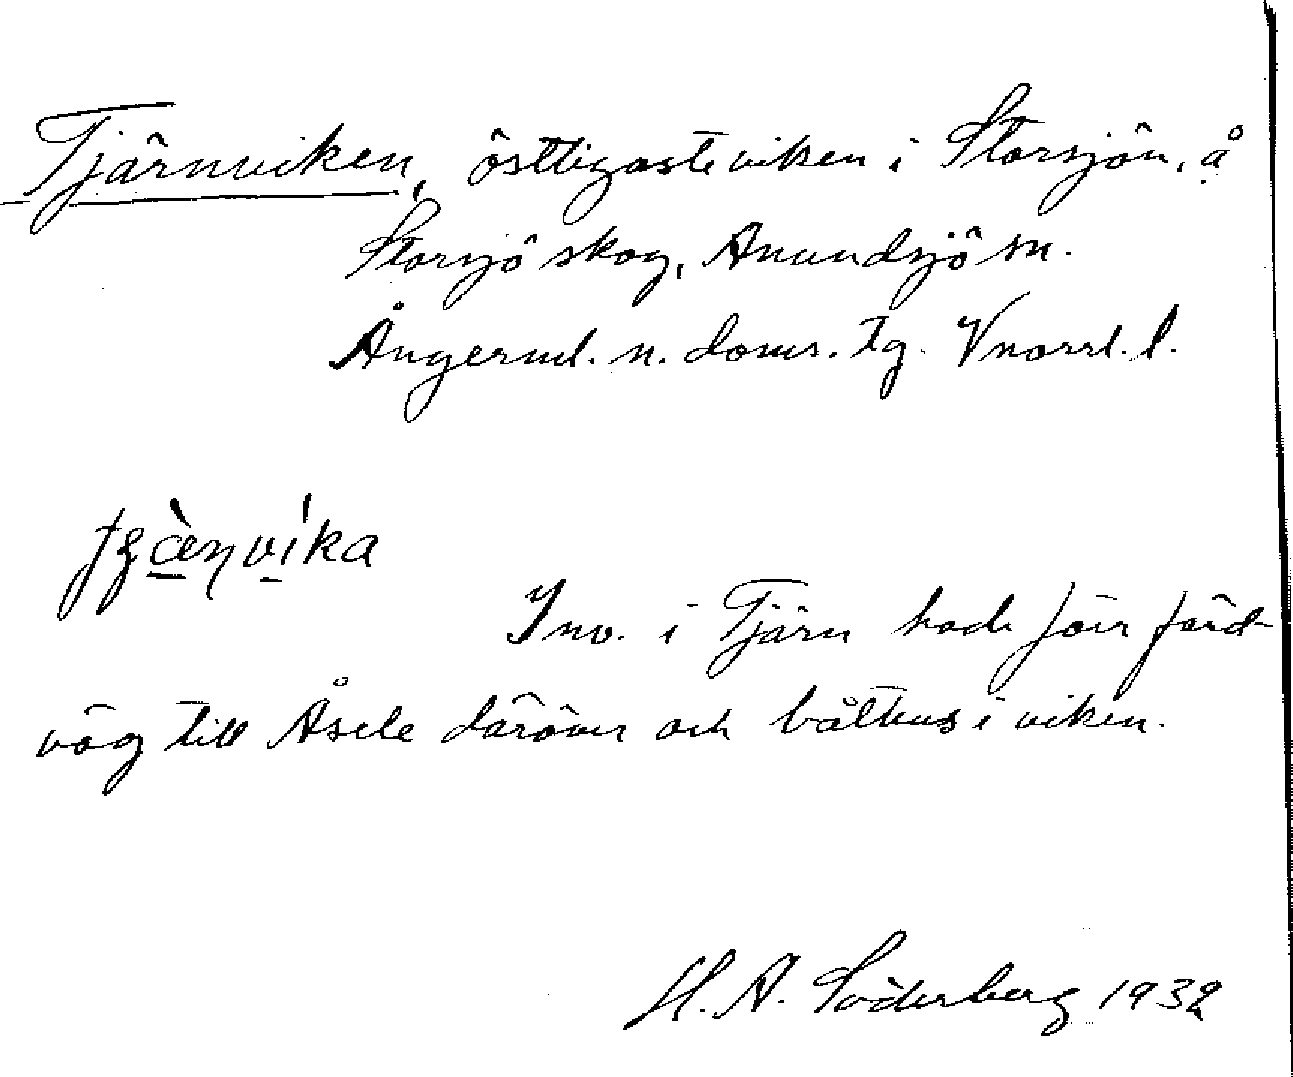 Tjärnviken, östligaste viken i Storsjön, å
Storsjö skog, Anundsjö sn.
Ångerml. n. doms. tg. Vnorrl. l.
Inv. i Tjärn hade förr färd-
väg till Åsele däröver och båthus i viken.
H. A. Söderberg 1932